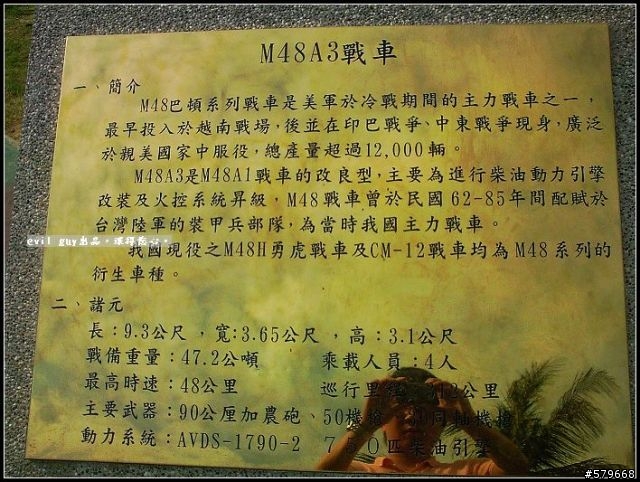 M48A3戰車
一、簡介
M48巴頓系列戰車是美軍於冷戰期間的主力戰車之一，
最早投入於越南戰場，後並在印巴戰爭、中東戰爭現身，廣泛
於親美國家中服役，總產量超過12,000輛。
M48A3是M48A1戰車的改良型，主要為進行柴油動力引擎
改裝及火控系統昇級，M48戰車曾於民國62-85年間配賦於
台灣陸軍的裝甲兵部隊，為當時我國主力戰車。
evil guy出品，
我國現役之M48H勇虎戰車及CM-12戰車均為M48系列的
衍生車種。
二、諸元
長：9.3公尺，寬：3.65公尺，高：3.1公尺
戰備重量：47.2公噸 乘載人員：4人
最高時速：48公里 巡行里程： 2公里
主要武器：90公厘加農砲、50機槍、 同軸機槍
動力系統：AVDS-1790-2 750匹柴油引擎
#579668